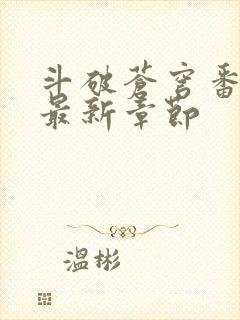 斗破苍穹番
最新章节
温彬